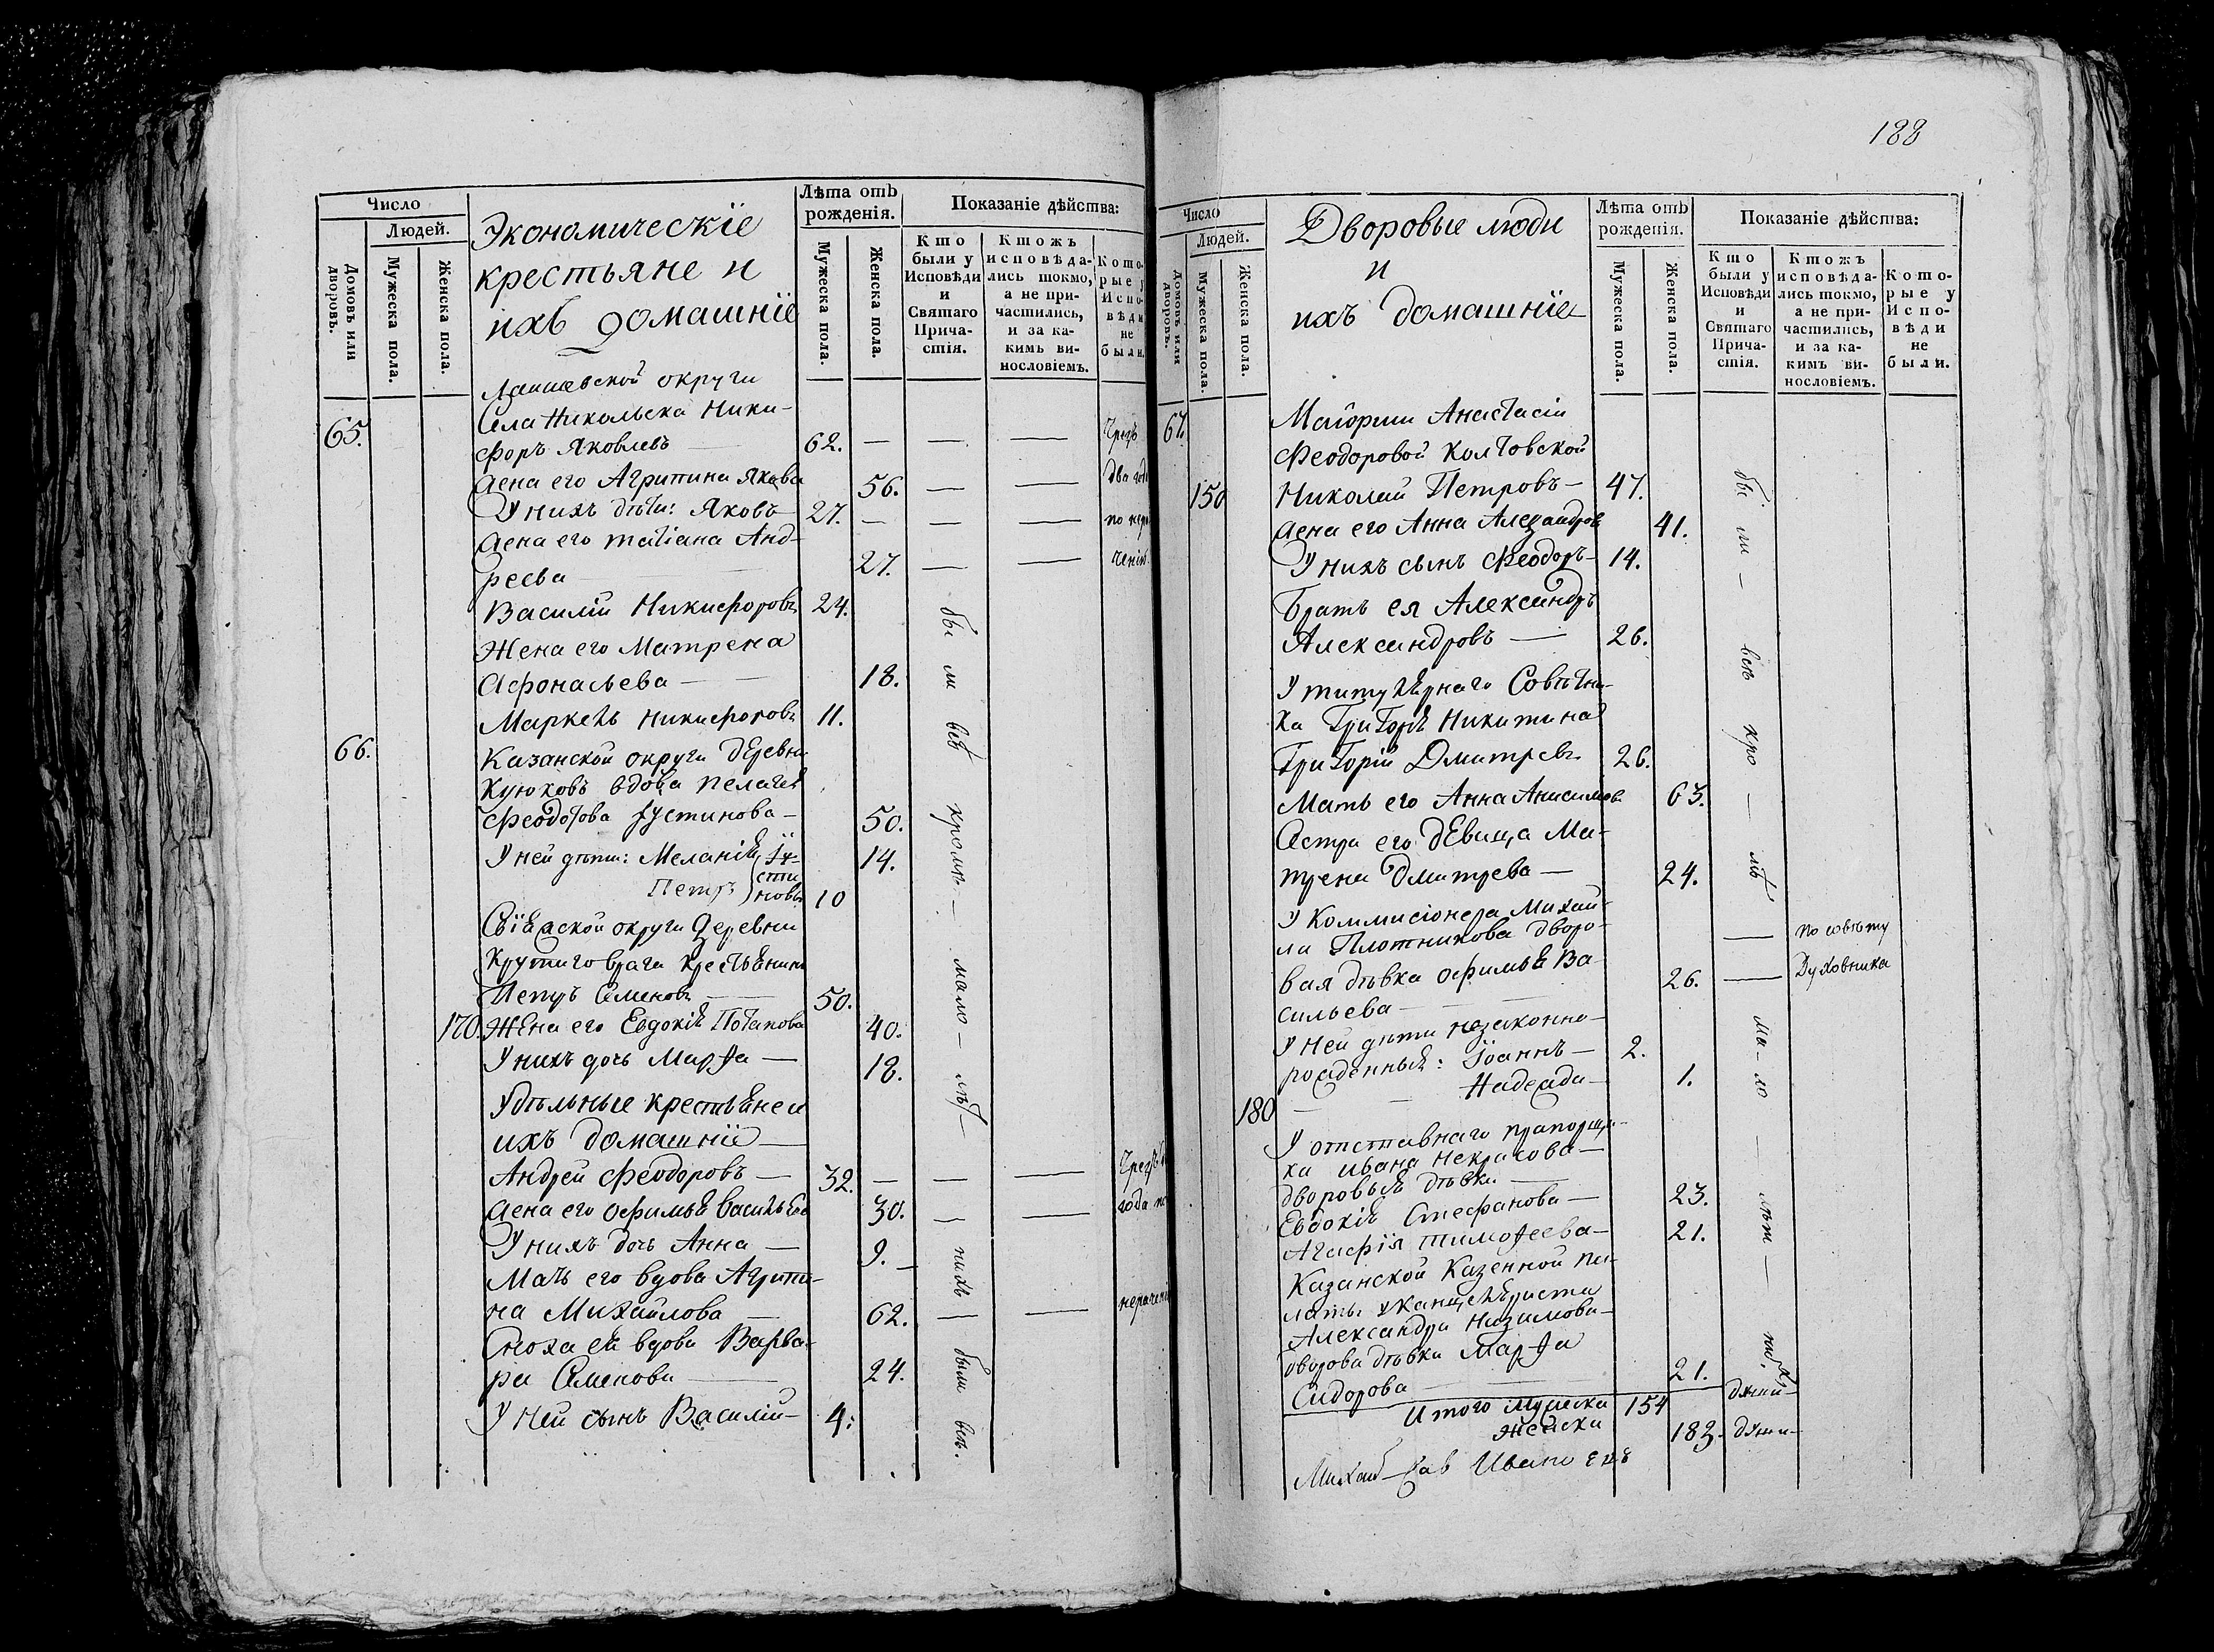 Число
Людей.
Домовъ или дворовъ.
Мужеска пола.
Женска пола.
Экономическіе
крестьяне и
ихъ домашніе
Лѣта отъ
рожденія.
Мужеска пола.
Женска пола.
Показаніе дѣйства:
Кто
были у
Исповѣди
и
Святаго
Прича-
стія.
Ктожъ
исповѣда-
лись токмо,
а не при-
частились,
и за ка-
кимъ ви-
нословіемъ.
Кото-
рые у
Испо-
вѣди
не
были.
Лаишевской округи
65. Села Никольска Ники-
форъ Яковлевъ — 62. — — — Чрезъ
жена его Агрипина Якова 56. — — два года
У нихъ дѣти: Яковъ 27. — — — по нера
жена его татіана Анд-
реева — 27. — — ченію
Василій Никифоровъ 24.
Жена его Матрена
Афонасьева — — 18.
Маркелъ Никифоровъ 11.
66. Казанской округи деревни
Куюковъ вдова пелагея
Феодотова Іустинова — 50.
У ней дѣти: Меланія Іу- 14.
сти
Петръ новы 10
Свіяжской округи деревни
Крутаговрага крестьянинъ
Петръ Семеновъ — 50.
170. Жена его Евдокія Потапова 40.
У нихъ дочь Марѳа — 18.
Удѣльные крестьяне и
ихъ домашніе —
Андрей Феодоровъ — 32. — — — Чрезъ
жена его Офимья Васильева 30. — — года
У нихъ дочь Анна — 9. —
Мать его вдова Агрипи-
на Михайлова — 62. — — нерачені
Сноха ея вдова Варва-
ра Семенова — 24.
У ней сынъ Василій — 4.
бы
ли
всѣ
кромѣ —
мало —
лѣт —
нихъ
были
всѣ.
188
Число
Людей.
Домовъ или дворовъ.
Мужеска пола.
Женска пола.
Дворовые люди
и
ихъ домашніе
Лѣта отъ
рожденія.
Мужеска пола.
Женска пола.
Показаніе дѣйства:
Кто
были у
Исповѣди
и
Святаго
Прича-
стія.
Ктожъ
исповѣда-
лись токмо,
а не при-
частились,
и за ка-
кимъ ви-
нословіемъ.
Кото-
рые у
Испо-
вѣди
не
были.
67. Маіорши Анастасіи
Феодоровой Колтовской
150 Николай Петровъ — 47.
жена его Анна Александров 41.
У нихъ сынъ Феодоръ — 14.
Братъ ея Александръ
Александровъ — 26.
У титулярнаго Совѣтни-
ка Григорья Никитина
Григорій Дмитревъ 26.
Мать его Анна Анисимов 63.
Сестра его дѣвица Ма-
трена Дмитрева — 24.
У Коммисіонера Михай-
ла Плотникова дворо- — по совѣту
вая дѣвка Офимья Ва- 26. — Духовника
сильева —
У ней дѣти незаконно-
рожденныя: Іоаннъ — 2.
180 — — Надежда — 1.
У отставнаго прапорщи-
ка Ивана Некрасова —
дворовыя дѣвки —
Евдокія Стефанова — 23.
Агафія тимоѳеева — 21.
Казанской Казенной па-
латы у Канцеляриста
Александра Назимова —
дворова дѣвка Марѳа
Сидорова — 21.
Итого Мужеска 154 души —
женска 183. души —
бы
ли —
всѣ
кро —
мѣ
ма — ло —
лѣт —